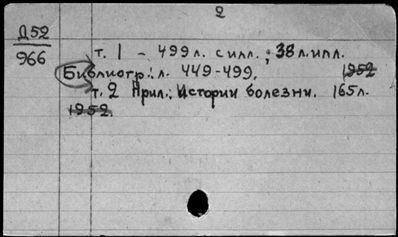 2
Д52
966
т. 1 - 499 л. с илл.; 38 л. илл.
Библиогр.: л. 449-499. 1952
т. 2 Прил.: Истории болезни. 165 л.
1952.